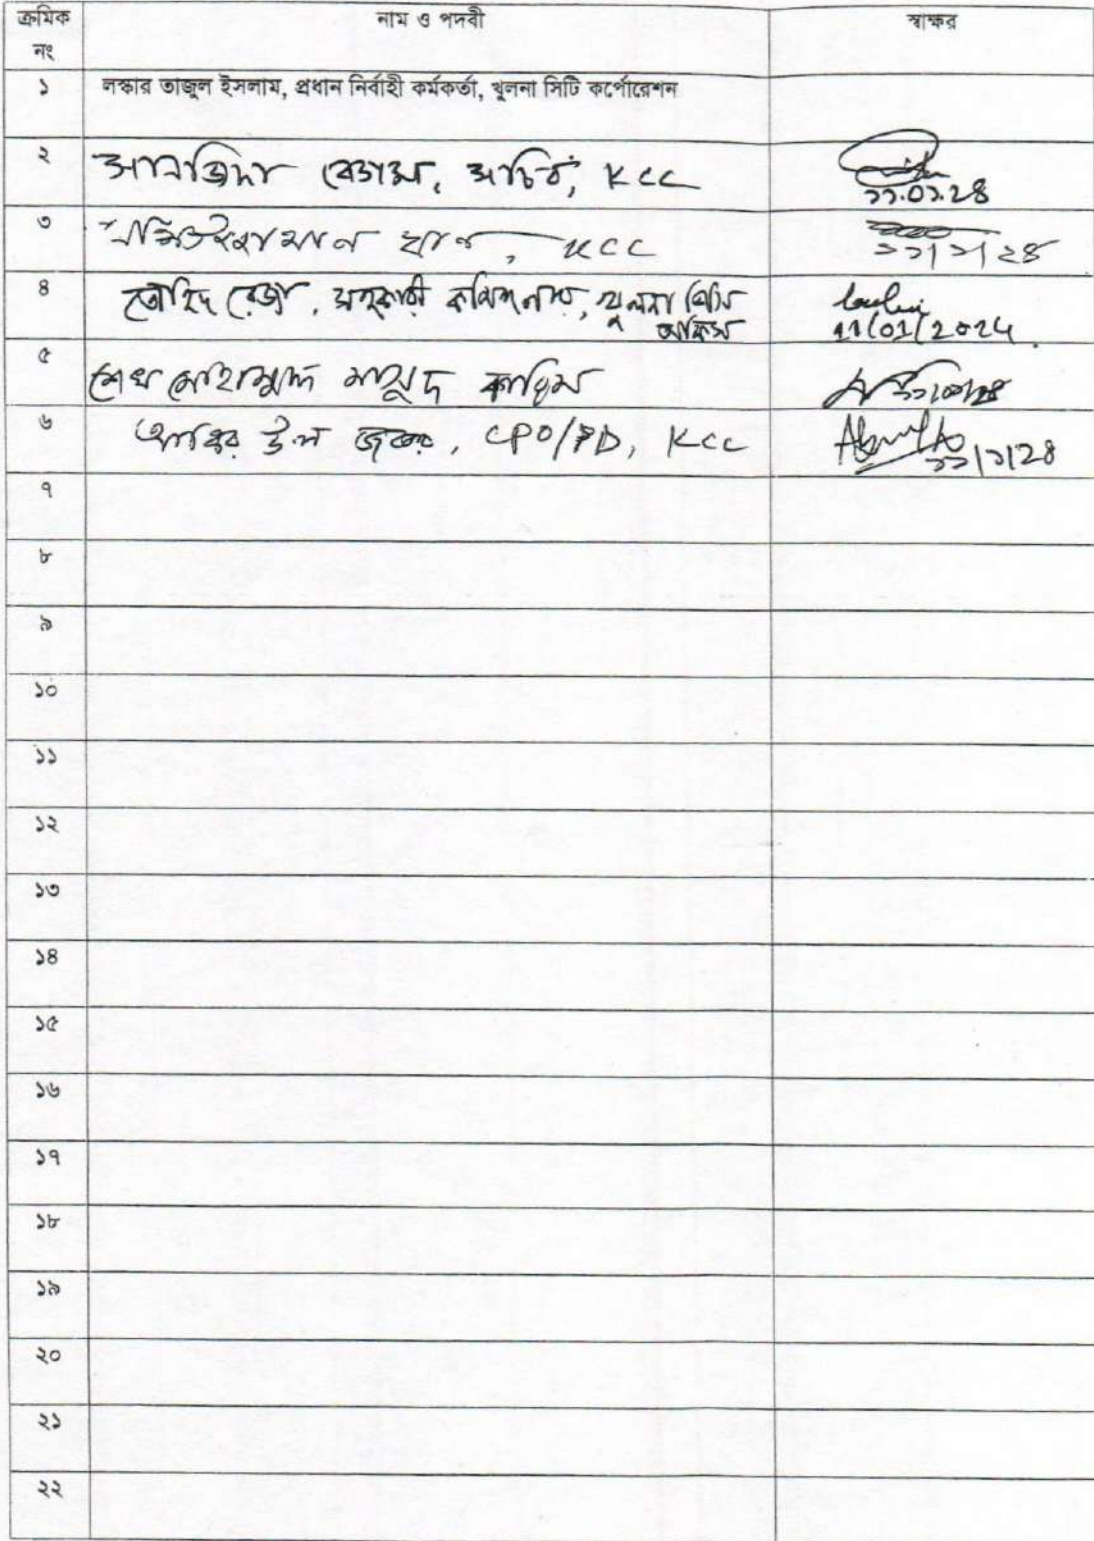 ক্রমিক নং নাম ও পদবী স্বাক্ষর
১ লস্কার তাজুল ইসলাম, প্রধান নির্বাহী কর্মকর্তা, খুলনা সিটি কর্পোরেশন
২ সানজিদা বেগম, সচিব, KCC ১১.০১.২৪
৩ খান, KCC ১১/১/২৪
৪ তৌহিদ রেজা, সহকারী কমিশনার, খুলনা ডিসি অফিস 11/01/2024
৫ শেখ মোহাম্মদ মাসুদ করিম
৬ আবির উল জব্বার, CPO/PD, KCC ১১/১/২৪
৭
৮
৯
১০
১১
১২
১৩
১৪
১৫
১৬
১৭
১৮
১৯
২০
২১
২২